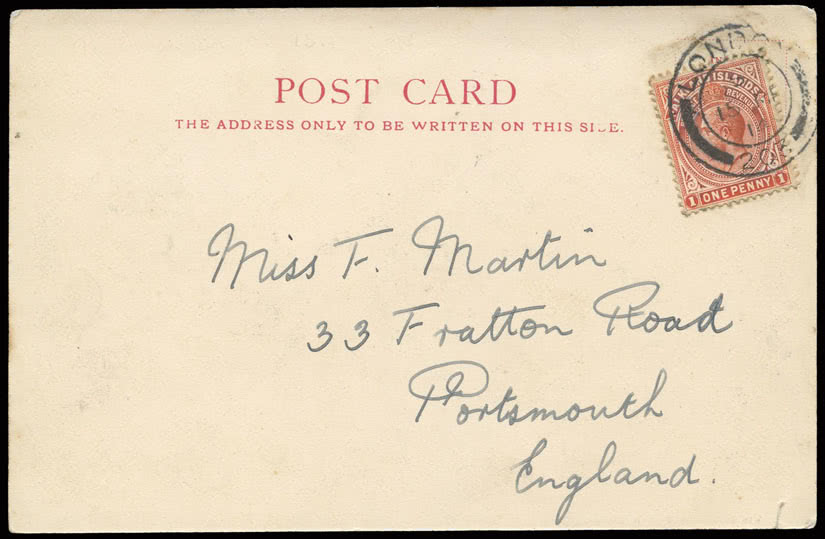 POST CARD
THE ADDRESS ONLY TO BE WRITTEN ON THIS SIDE.
LONDON
ISLANDS
REVENUE
1 ONE PENNY 1
Miss F. Martin
33 Fratton Road
Portsmouth
England.